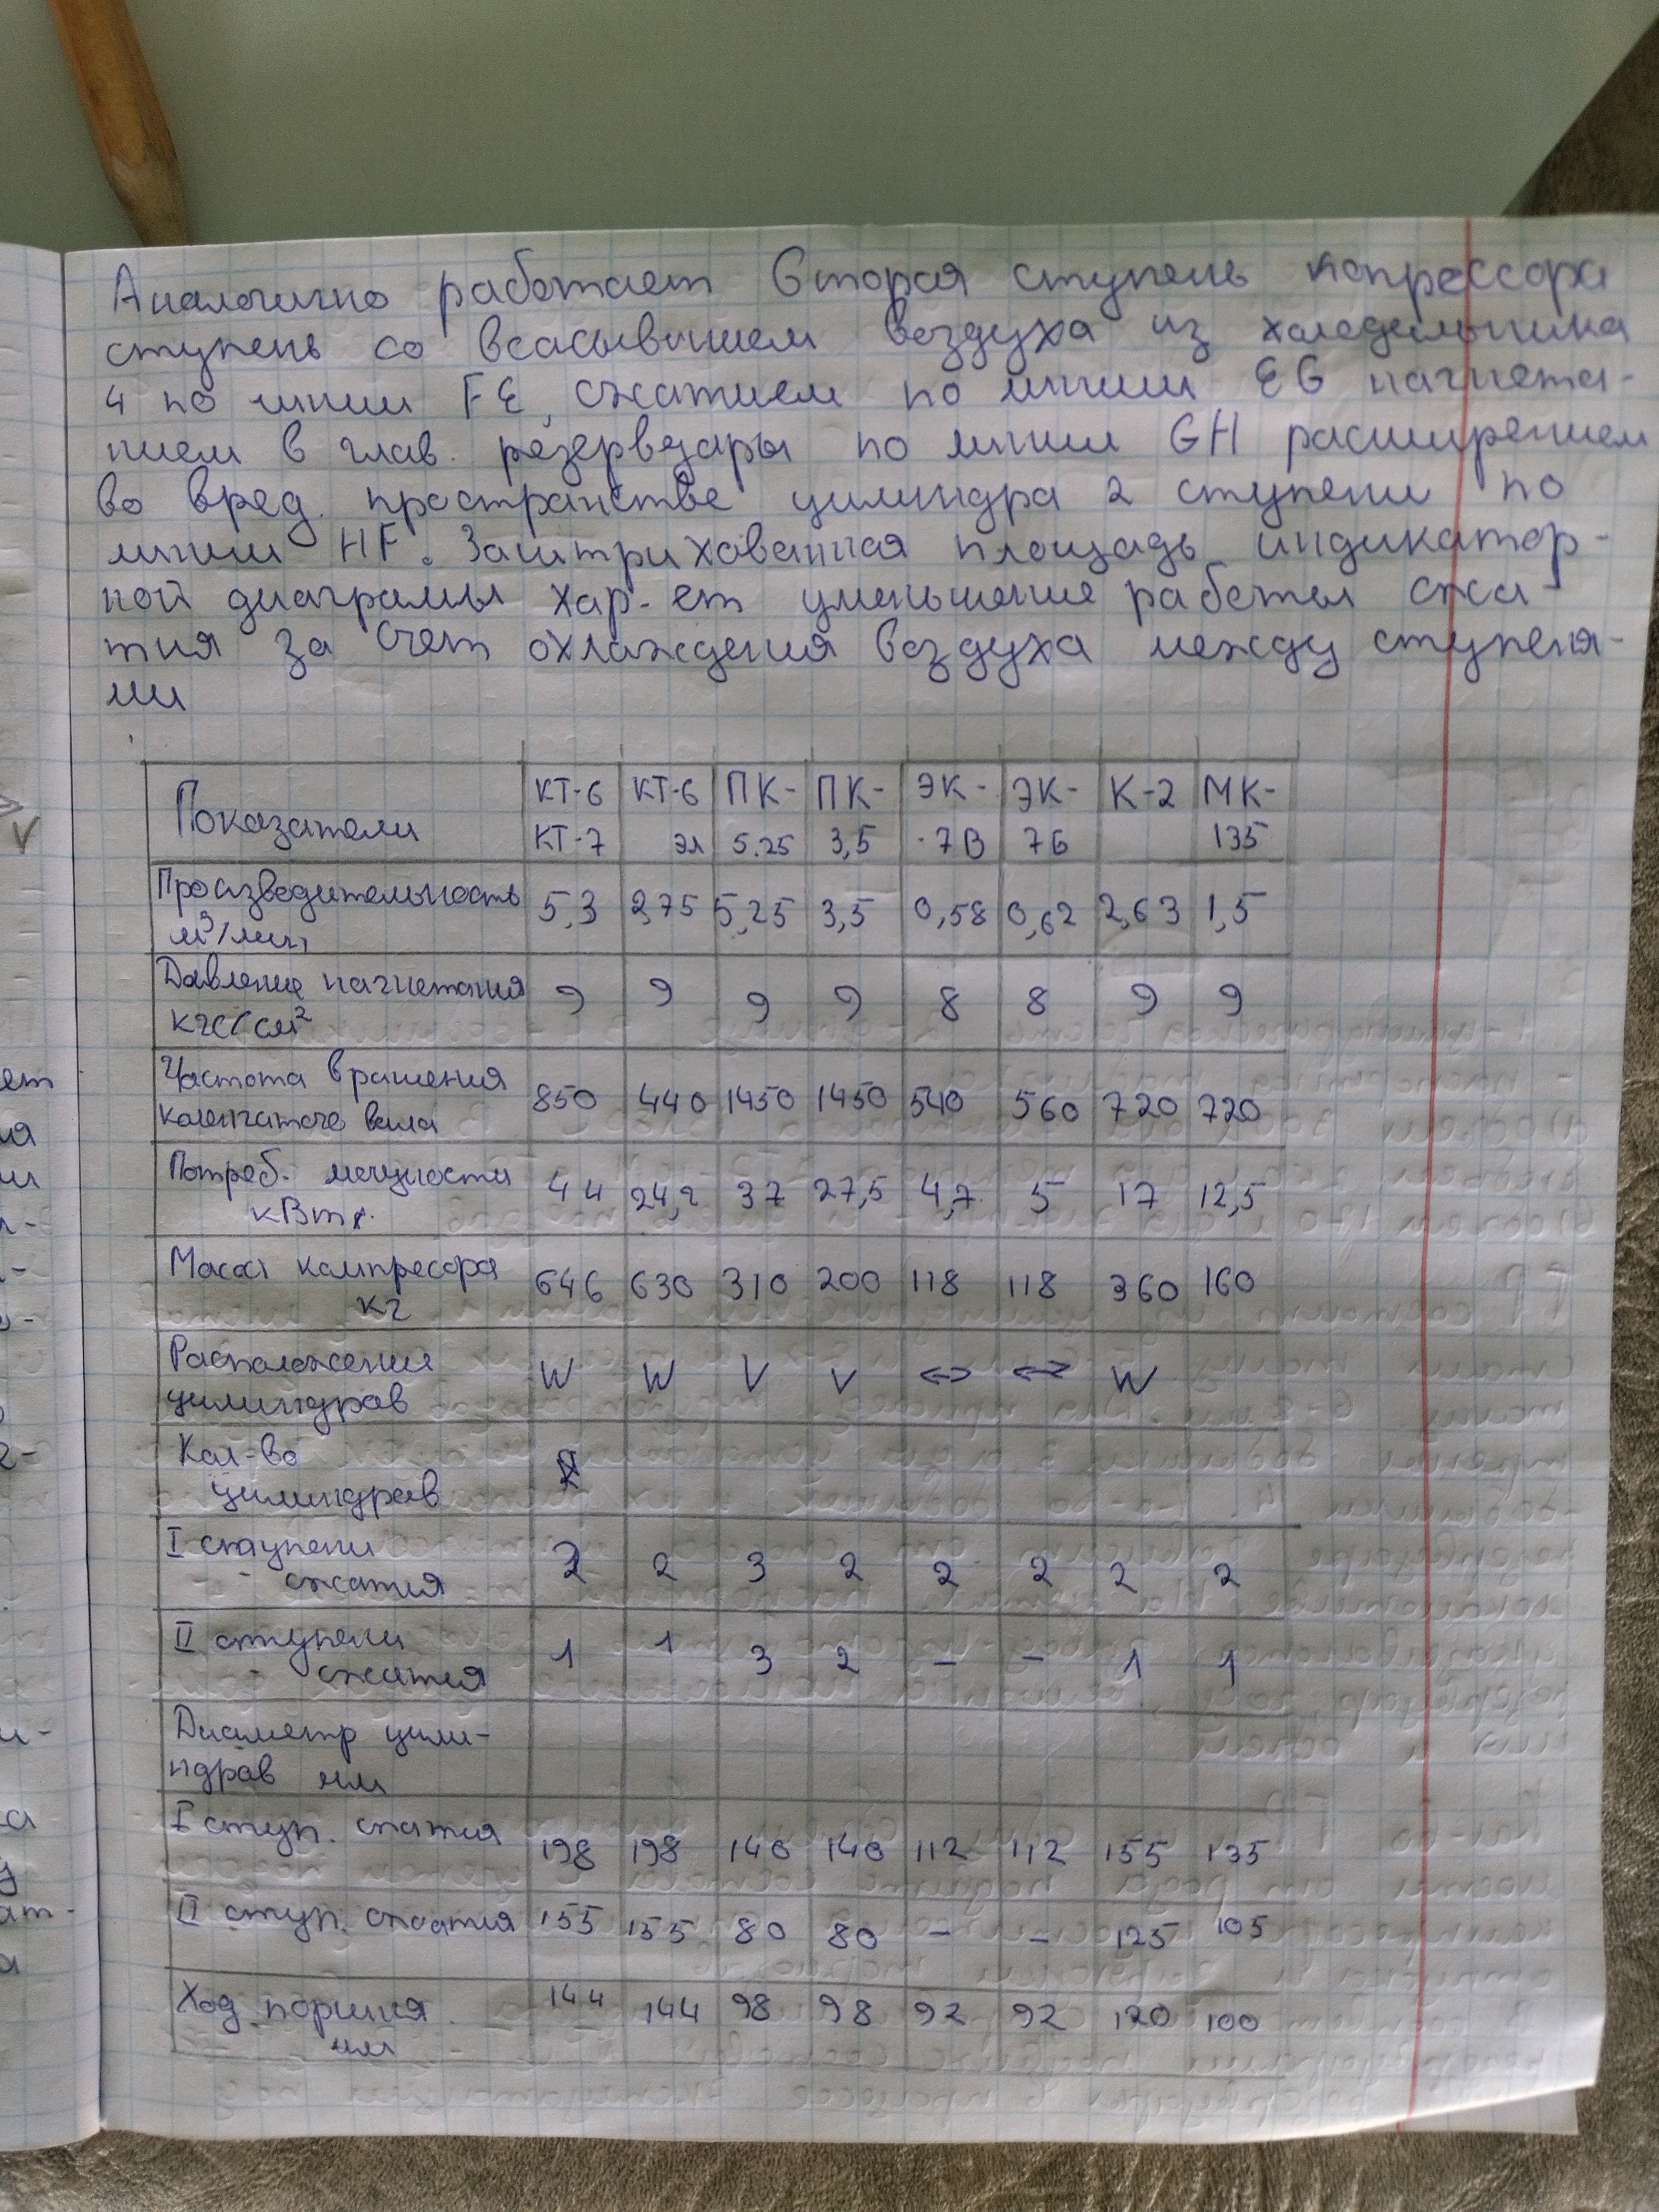 Аналогично работает вторая ступень копрессора
ступень со всасыванием воздуха из холодильника
4 по линии FE, сжатием по линии EG нагнета-
нием в глав. резервуары по линии GH расширением
во вред. пространстве цилиндра 2 ступени по
линии HF. Заштрихованная площадь индикатор-
ной диаграммы хар-ет уменьшение работы сжа-
тия за счет охлаждения воздуха между ступеня-
ми
Показатели КТ-6 КТ-7 КТ-6 эл ПК-5.25 ПК-3,5 ЭК-7В ЭК-7Б К-2 МК-135
Производительность м³/мин 5,3 2,75 5,25 3,5 0,58 0,62 2,63 1,5
Давление нагнетания кгс/см² 9 9 9 9 8 8 9 9
Частота вращения коленчатого вала 850 440 1450 1450 540 560 720 720
Потреб. мощности кВт 44 24,2 37 27,5 4,7 5 17 12,5
Масса компресора кг 646 630 310 200 118 118 360 160
Расположение цилиндров W W V V ↔ ↔ W
Кол-во цилиндров
I ступени сжатия 2 2 3 2 2 2 2 2
II ступени сжатия 1 1 3 2 – – 1 1
Диаметр цили-
ндров мм
I ступ. сжатия 198 198 140 140 112 112 155 135
II ступ. сжатия 155 155 80 80 – – 125 105
Ход поршня мм 144 144 98 98 92 92 120 100